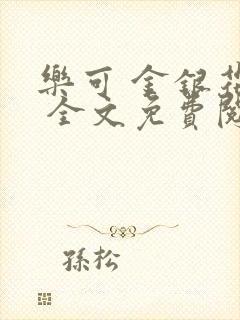 樂可 金銀花
全文免費閱
孫松